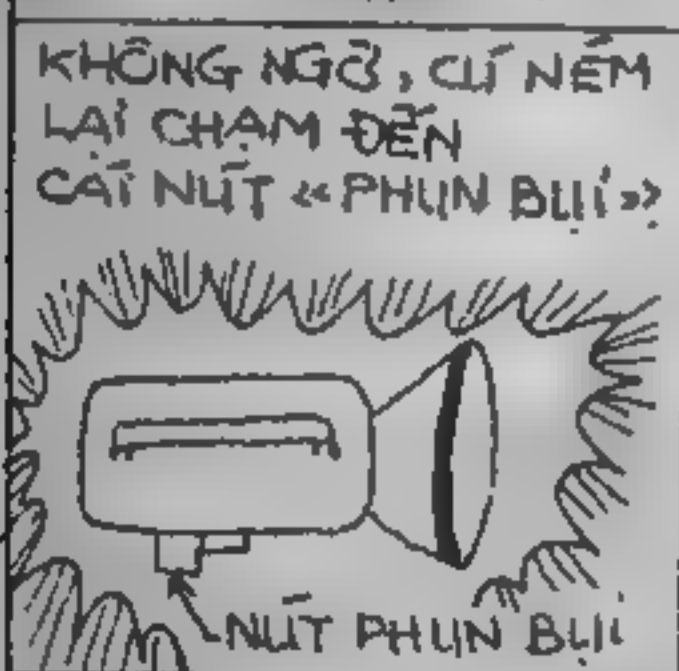 KHÔNG NGỜ, CỨ NẾM
LẠI CHẠM ĐẾN
CÁI NÚT «PHUN BỤI»
NÚT PHUN BỤI